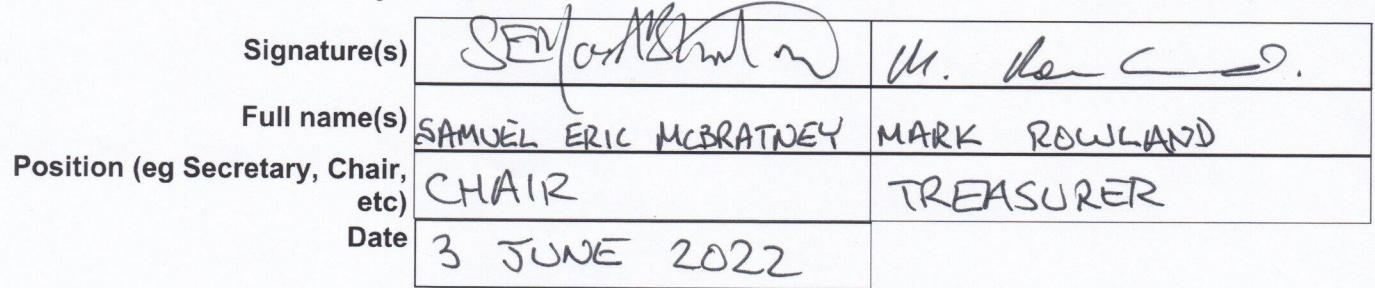 Signature(s)
M.
Full name(s) SAMUEL ERIC MCBRATNEY MARK ROWLAND
Position (eg Secretary, Chair, etc) CHAIR TREASURER
Date 3 JUNE 2022